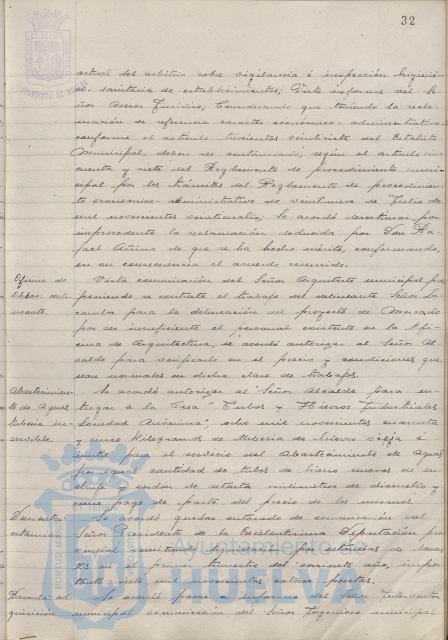 32
actual del arbitrio sobre vigilancia é inspección higienico
sanitaria de establecimientos; Visto informe del Se-
ñor Asesor Jurídico; Considerando que teniendo la recla-
mación de referencia caracter económico-administrativo
conforme el artículo trescientos veintisiete del Estatuto
Municipal, deben ser sustanciada, según el artículo cin-
cuenta y siete del Reglamento de procedimiento muni-
cipal por los trámites del Reglamento de procedimien-
to economico-administrativo de veintinueve de Julio de
mil novecientos veinticuatro; Se acordó desestimar por
improcedente la reclamación deducida por Don Ra-
fael de que se ha hecho mérito, confirmando,
en su consecuencia el acuerdo recurrido.
Oficina de Vista comunicación del Señor Arquitecto municipal pro
Obras: deli- poniendo se contrate el trabajo del delineante Señor La
neante. comba para la delineación del proyecto de Mercado
por ser insuficiente el personal existente en la Ofi
cina de Arquitectura, se acordó autorizar al Señor Al
calde para verificarlo en el precio y condiciones que
sean normales en dicha clase de trabajos.
Abastecimien- Se acordó autorizar al Señor Alcalde para en
to de Aguas tregar a la Casa "Tubos y Hierros Industriales
tubería in- Sociedad Anónima", ocho mil novecientos cuarenta
servible. y cinco Kilogramos de tubería de hierro vieja é
inutil para el servicio del Abastecimiento de Aguas
por igual cantidad de tubos de hierro nuevos de en-
chufe y cordón de setenta milímetros de diametro y
como pago de parte del precio de los mismos.
Dementes: Se acordó quedar enterado de comunicación del
estancias Señor Presidente de la Excelentísima Diputación pro
vincial remitiendo liquidación por estancias de demen
tes en el primer trimestre del corriente año, impor
tante siete mil novecientas catorce pesetas.
ad- Se acordó pasar a informe del Señor Interventor
quisición municipal comunicación del Señor Ingeniero municipal
Ayuntamiento de
HUELVA